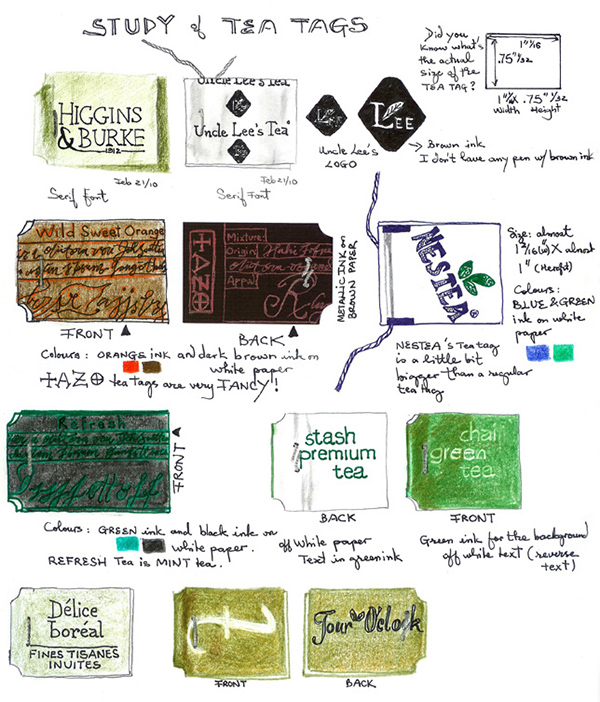 STUDY of TEA TAGS
Did you
know what's
the actual
size of the
TEA TAG?
1" 1/16
.75" 1/32
1" 1/16 X .75" 1/32
Width Height
HIGGINS
& BURKE
1912
Feb 21/10
Serif Font
Uncle Lee's Tea
LEE
Uncle Lee's Tea®
LEE
Feb 21/10
Serif Font
LEE
LEE
Uncle Lee's
LOGO
→ Brown ink
I don't have any pen w/ brown ink
Wild Sweet Orange
FRONT
TAZO
Mixture:
Origin:
Appeal
BACK
METALLIC INK on
BROWN PAPER
Colours: ORANGE ink and dark brown ink on
white paper
TAZO tea tags are very FANCY!
NESTEA®
Size: almost
1 3/16 (W) X almost
1" (Height)
Colours:
BLUE & GREEN
ink on white
paper
NESTEA's Tea tag
is a little bit
bigger than a regular
tea tag
Refresh
FRONT
Colours: GREEN ink and black ink on
white paper.
REFRESH Tea is MINT tea.
stash
premium
tea
BACK
off white paper
Text in green ink
chai
green
tea
FRONT
Green ink for the background
off white text (reverse
text)
Délice
boréal
FINES TISANES
INUITES
t
FRONT
Four O'Clock
BACK